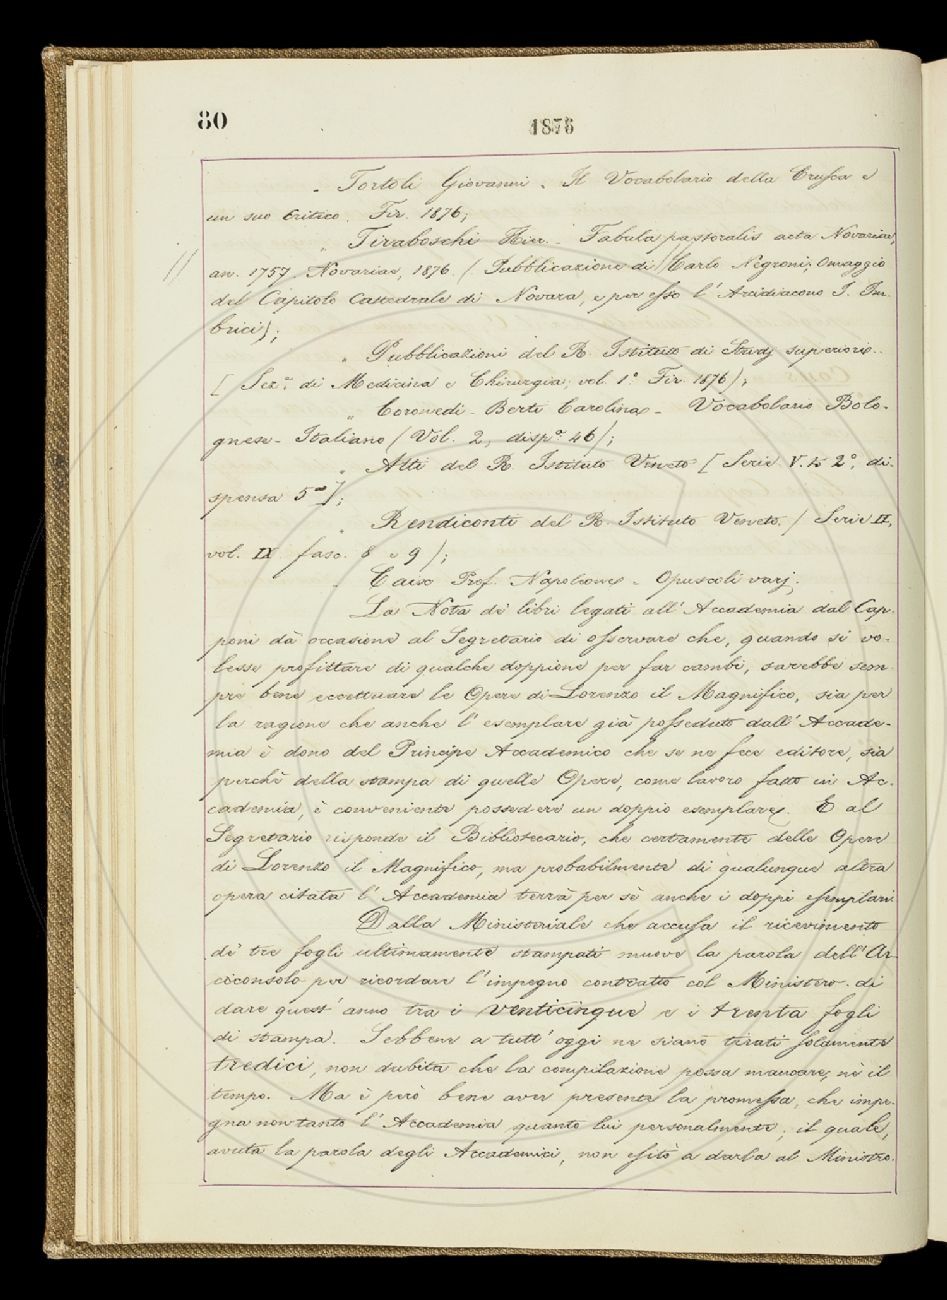 80
1876
„ Tortoli Giovanni. Il Vocabolario della Crusca e
un suo Critico. Fir. 1876;
„ Tiraboschi Hier. Fabula pastoralis acta Novariae,
an. 1757. Novariae, 1876. (Pubblicazione di Carlo Negroni; Omaggio
del Capitolo Cattedrale di Novara, e per esso l'Arcidiacono I. Im-
brici);
„ Pubblicazioni del R. Istituto di Studj superiori..
[Sez.e di Medicina e Chirurgia; vol. 1.° Fir. 1876);
„ Coronedi-Berti Carolina - Vocabolario Bolo-
gnese-Italiano (Vol. 2, disp.a 46);
„ Atti del R. Istituto Veneto [Serie V. to 2°, di-
spensa 5a];
„ Rendiconti del R. Istituto Veneto. (Serie II,
vol. IX fasc. 8 e 9);
„ Caix Prof. Napoleone - Opuscoli varj.
La Nota de' libri legati all'Accademia dal Cap-
poni dà occasione al Segretario di osservare che, quando si vo-
lesse profittare di qualche doppione per far cambi, sarebbe sem-
pre bene eccettuare le Opere di Lorenzo il Magnifico, sia per
la ragione che anche l'esemplare già posseduto dall'Accade-
mia è dono del Principe Accademico che se ne fece editore, sia
perchè della stampa di quelle Opere, come lavoro fatto in Ac-
cademia, è conveniente possedere un doppio esemplare. E al
Segretario risponde il Bibliotecario, che certamente delle Opere
di Lorenzo il Magnifico, ma probabilmente di qualunque altra
opera citata l'Accademia terrà per sè anche i doppi esemplari.
Dalla Ministeriale che accusa il ricevimento
de' tre fogli ultimamente stampati muove la parola dell'Ar-
ciconsolo per ricordare l'impegno contratto col Ministero di
dare quest'anno tra i venticinque e i trenta fogli
di stampa. Sebbene a tutt'oggi ne siano tirati solamente
tredici, non dubita che la compilazione possa mancare, nè il
tempo. Ma è però bene aver presente la promessa, che impe-
gna non tanto l'Accademia quanto lui personalmente; il quale,
avuta la parola degli Accademici, non esitò a darla al Ministro.